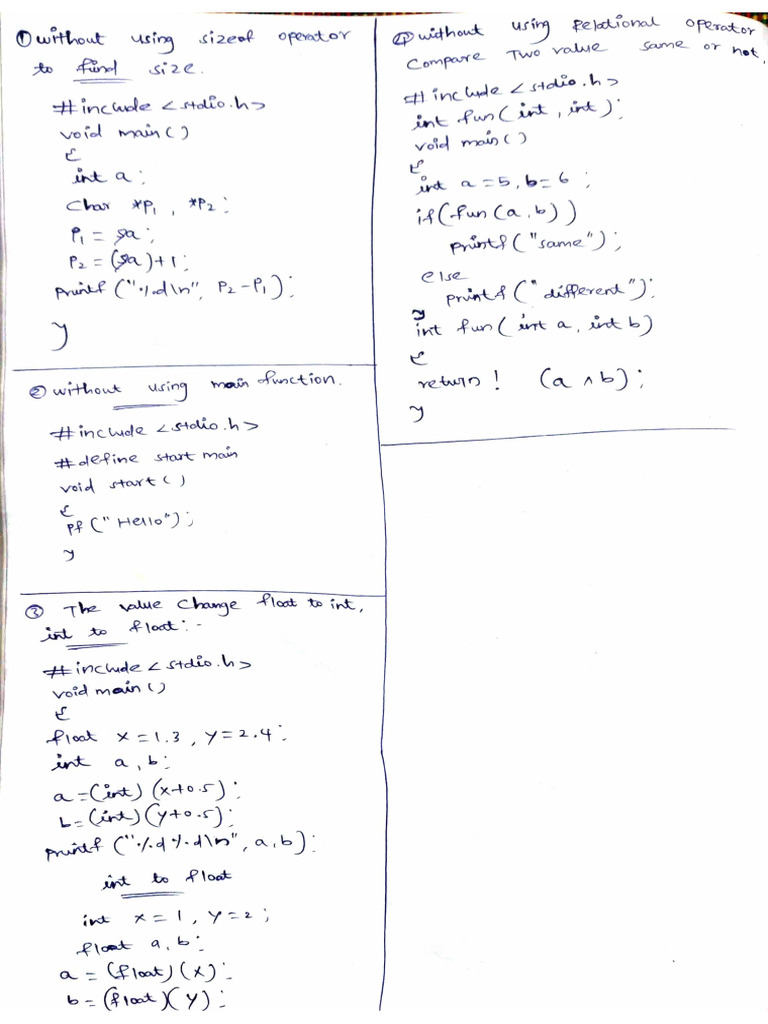 ① without using sizeof operator
to find size.
#include <stdio.h>
void main()
{
int a;
char *P1, *P2;
P1 = &a;
P2 = (&a)+1;
printf("%d\n", P2-P1);
}
② without using main function.
#include <stdio.h>
#define start main
void start()
{
pf("Hello");
}
③ The value Change float to int,
int to float:-
#include <stdio.h>
void main()
{
float x=1.3, y=2.4;
int a, b;
a=(int)(x+0.5);
b=(int)(y+0.5);
printf("%d %d\n", a, b);
int to float
int x=1, y=2;
float a, b;
a = (float)(x);
b = (float)(y);
④ without using Relational operator
Compare Two value same or not.
#include <stdio.h>
int fun(int, int);
void main()
{
int a=5, b=6;
if(fun(a,b))
printf("same");
else
printf("different");
}
int fun(int a, int b)
{
return! (a^b);
}